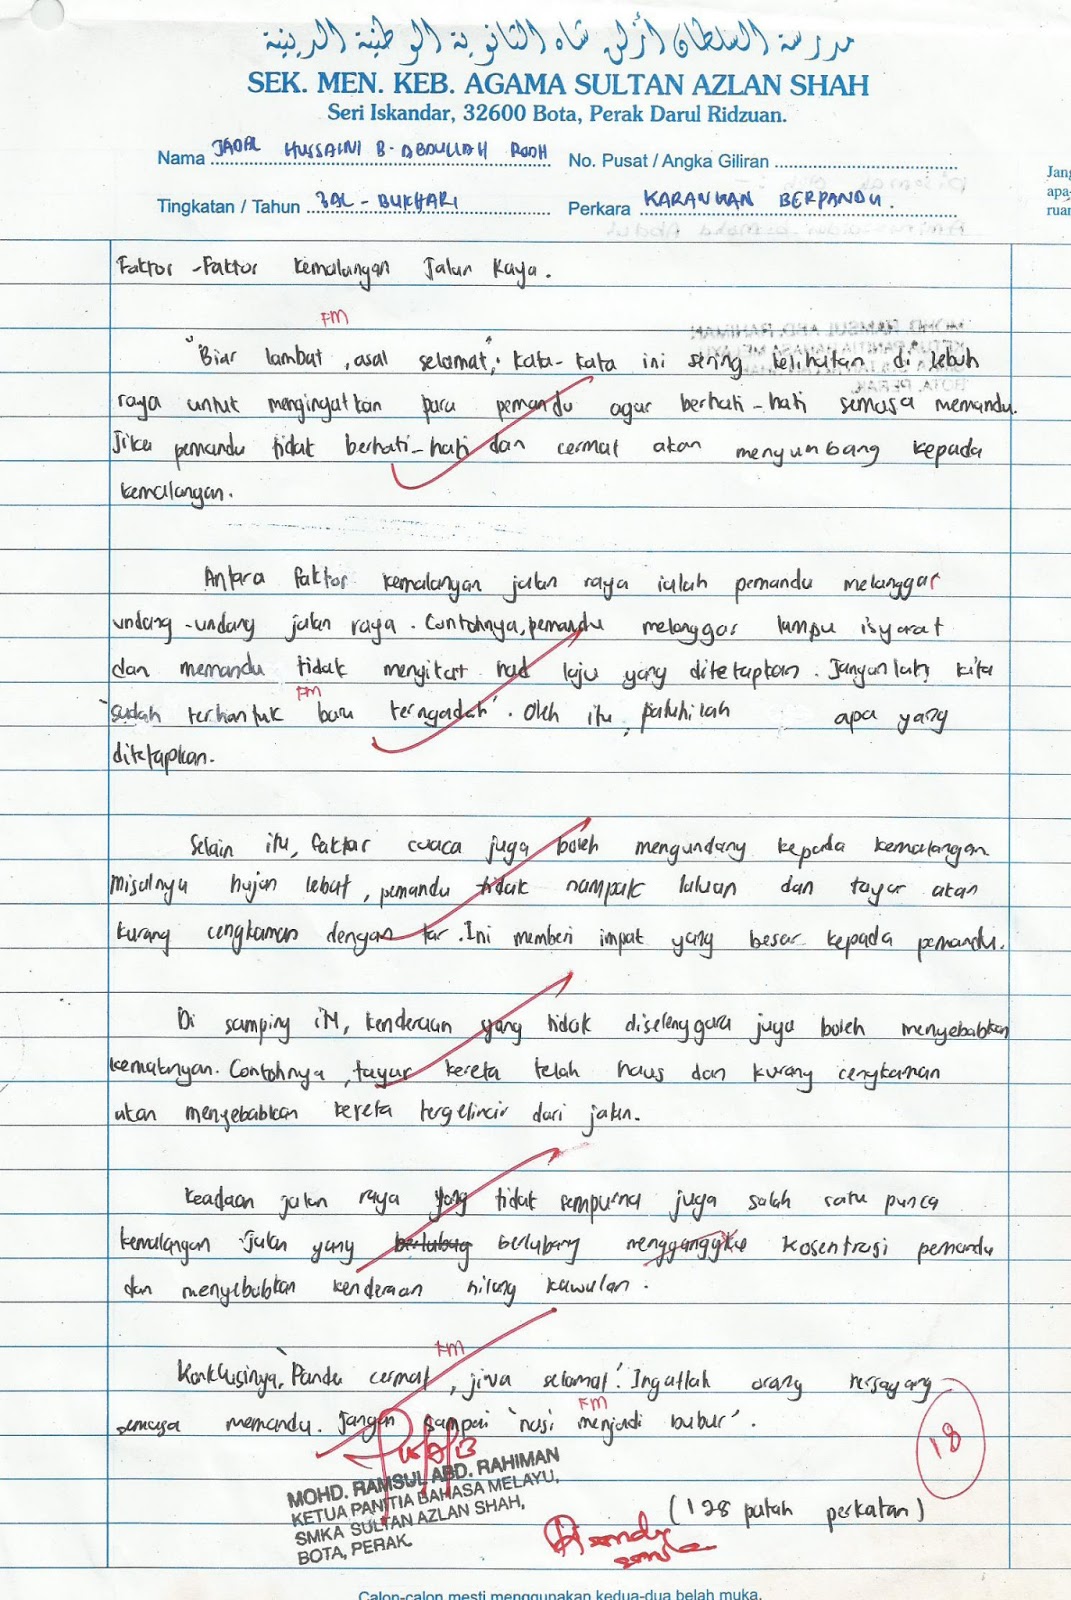 مدرسة السلطان أزلن شاه الثانوية الوطنية الدينية
SEK. MEN. KEB. AGAMA SULTAN AZLAN SHAH
Seri Iskandar, 32600 Bota, Perak Darul Ridzuan.
Nama HUSSAINI B. ABDULLAH No. Pusat / Angka Giliran
Jang
Tingkatan / Tahun 3AL - BUKHARI Perkara KARANGAN BERPANDU.
apa-
ruan
Faktor - Faktor kemalangan Jalan Raya.
FM
"Biar lambat, asal selamat", kata-kata ini sering kelihatan di lebuh
raya untuk mengingatkan para pemandu agar berhati-hati semasa memandu.
Jika pemandu tidak berhati-hati dan cermat akan menyumbang kepada
kemalangan.
Antara faktor kemalangan jalan raya ialah pemandu melanggar
undang-undang jalan raya. Contohnya, pemandu melanggar lampu isyarat
dan memandu tidak mengikut had laju yang ditetapkan. Janganlah kita
FM
'sudah terhantuk baru terngadah'. Oleh itu, patuhilah apa yang
ditetapkan.
Selain itu, faktor cuaca juga boleh mengundang kepada kemalangan.
misalnya hujan lebat, pemandu tidak nampak laluan dan tayar akan
kurang cengkaman dengan tar. Ini memberi impak yang besar kepada pemandu.
Di samping itu, kenderaan yang tidak diselenggara juga boleh menyebabkan
kemalangan. Contohnya, tayar kereta telah haus dan kurang cengkaman
akan menyebabkan kereta tergelincir dari jalan.
Keadaan jalan raya yang tidak sempurna juga salah satu punca
kemalangan. Jalan yang berlubang kosentrasi pemandu
dan menyebabkan kenderaan hilang kawalan.
FM
Konklusinya, 'Pandu cermat, jiwa selamat'. Ingatlah orang tersayang
FM
semasa memandu. Jangan sampai 'nasi menjadi bubur'.
18
MOHD. RAMSUL ABD. RAHIMAN
KETUA PANITIA BAHASA MELAYU,
SMKA SULTAN AZLAN SHAH,
BOTA, PERAK.
(128 patah perkatan)
Calon-calon mesti menggunakan kedua-dua belah muka.